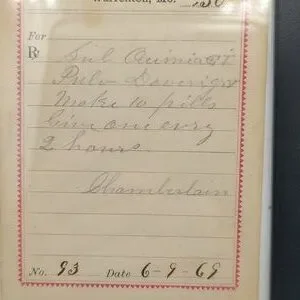 Warrenton, Mo.
For
R
Sul Quiniae
Pulv Doveri gr
Make 10 pills
Give one evry
2 hours
Chamberlain
No. 93 Date 6-9-69